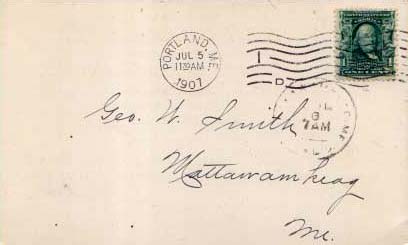 PORTLAND, ME.
JUL 5
11 30 AM
1907
1
D
7 AM
ONE CENT
Geo. W. Smith
Mattawamkeag
Me.